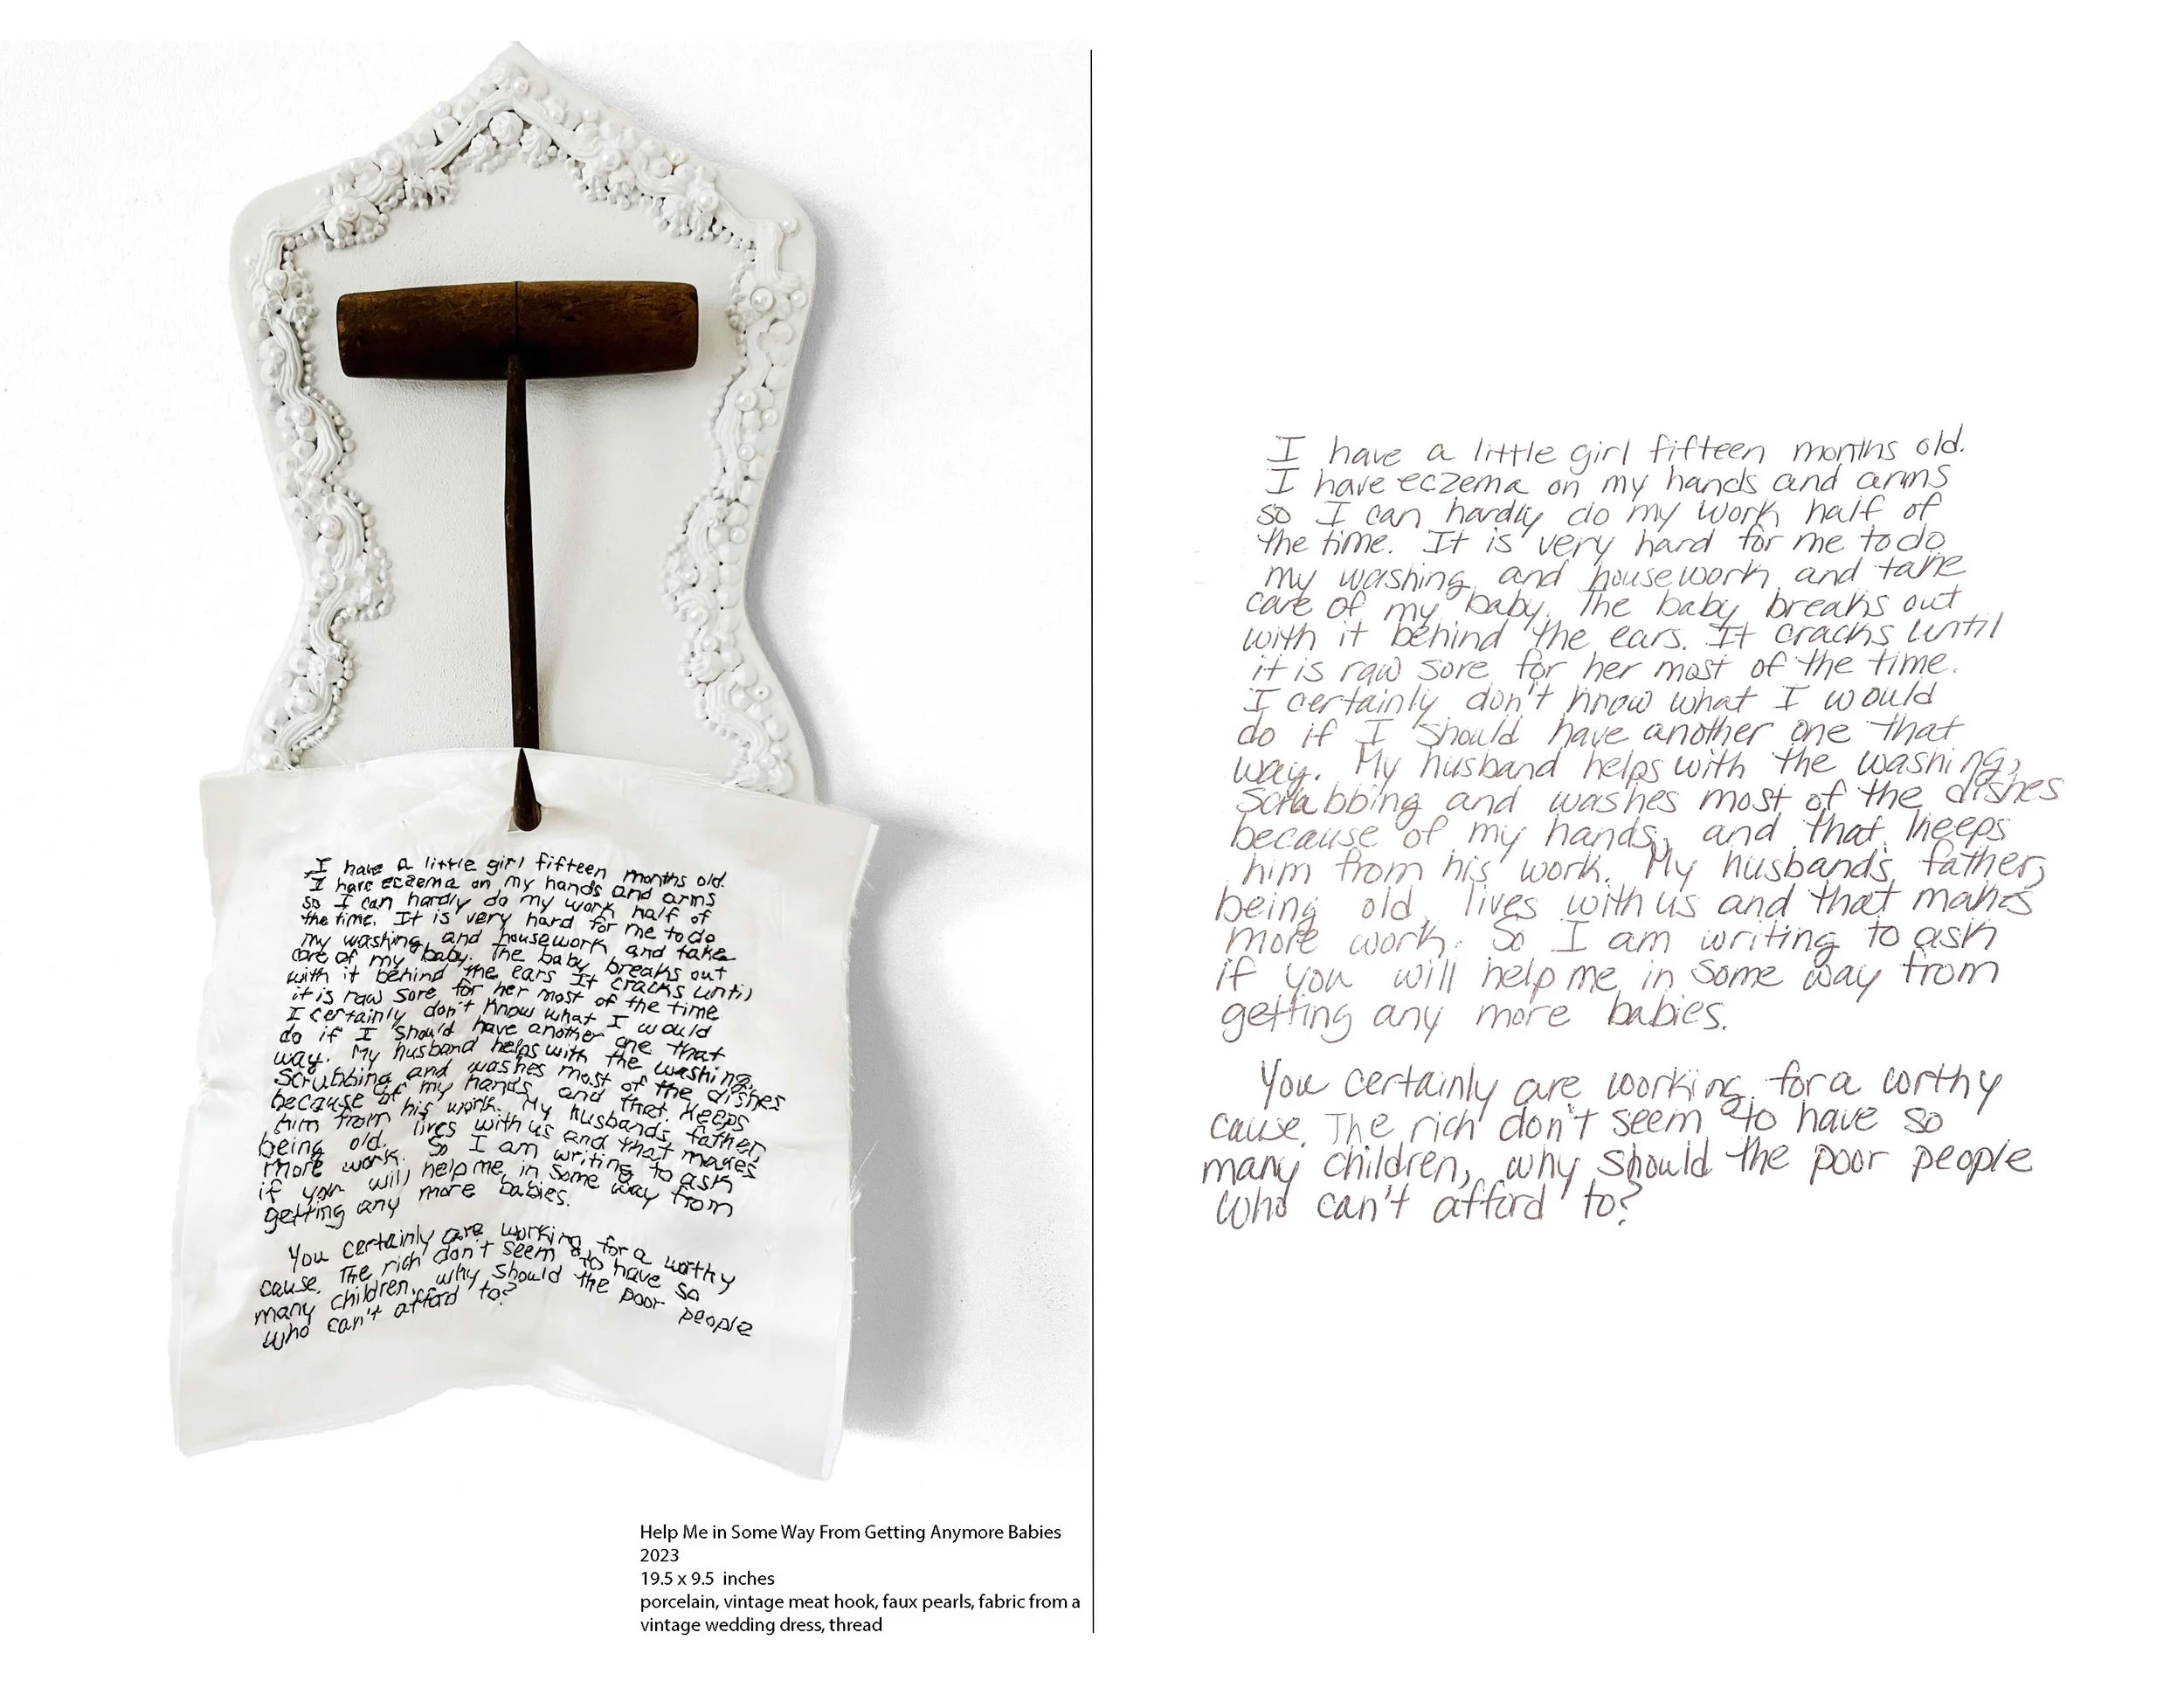 I have a little girl fifteen months old.
I have eczema on my hands and arms
so I can hardly do my work half of
the time. It is very hard for me to do
my washing and housework and take
care of my baby. The baby breaks out
with it behind the ears It cracks until
it is raw sore for her most of the time
I certainly don't know what I would
do if I should have another one that
way. My husband helps with the washing,
scrubbing and washes most of the dishes
because of my hands, and that keeps
him from his work. My husbands father,
being old, lives with us and that makes
more work. So I am writing to ask
if you will help me in some way from
getting any more babies.
You certainly are working for a worthy
cause. The rich don't seem to have so
many children, why should the poor people
who can't afford to?
Help Me in Some Way From Getting Anymore Babies
2023
19.5 x 9.5 inches
porcelain, vintage meat hook, faux pearls, fabric from a
vintage wedding dress, thread
I have a little girl fifteen months old.
I have eczema on my hands and arms
so I can hardly do my work half of
the time. It is very hard for me to do
my washing and housework and take
care of my baby. The baby breaks out
with it behind the ears. It cracks until
it is raw sore for her most of the time.
I certainly don't know what I would
do if I should have another one that
way. My husband helps with the washing,
scrubbing and washes most of the dishes
because of my hands, and that keeps
him from his work. My husband's father,
being old, lives with us and that makes
more work. So I am writing to ask
if you will help me in some way from
getting any more babies.
You certainly are working for a worthy
cause. The rich don't seem to have so
many children, why should the poor people
who can't afford to?